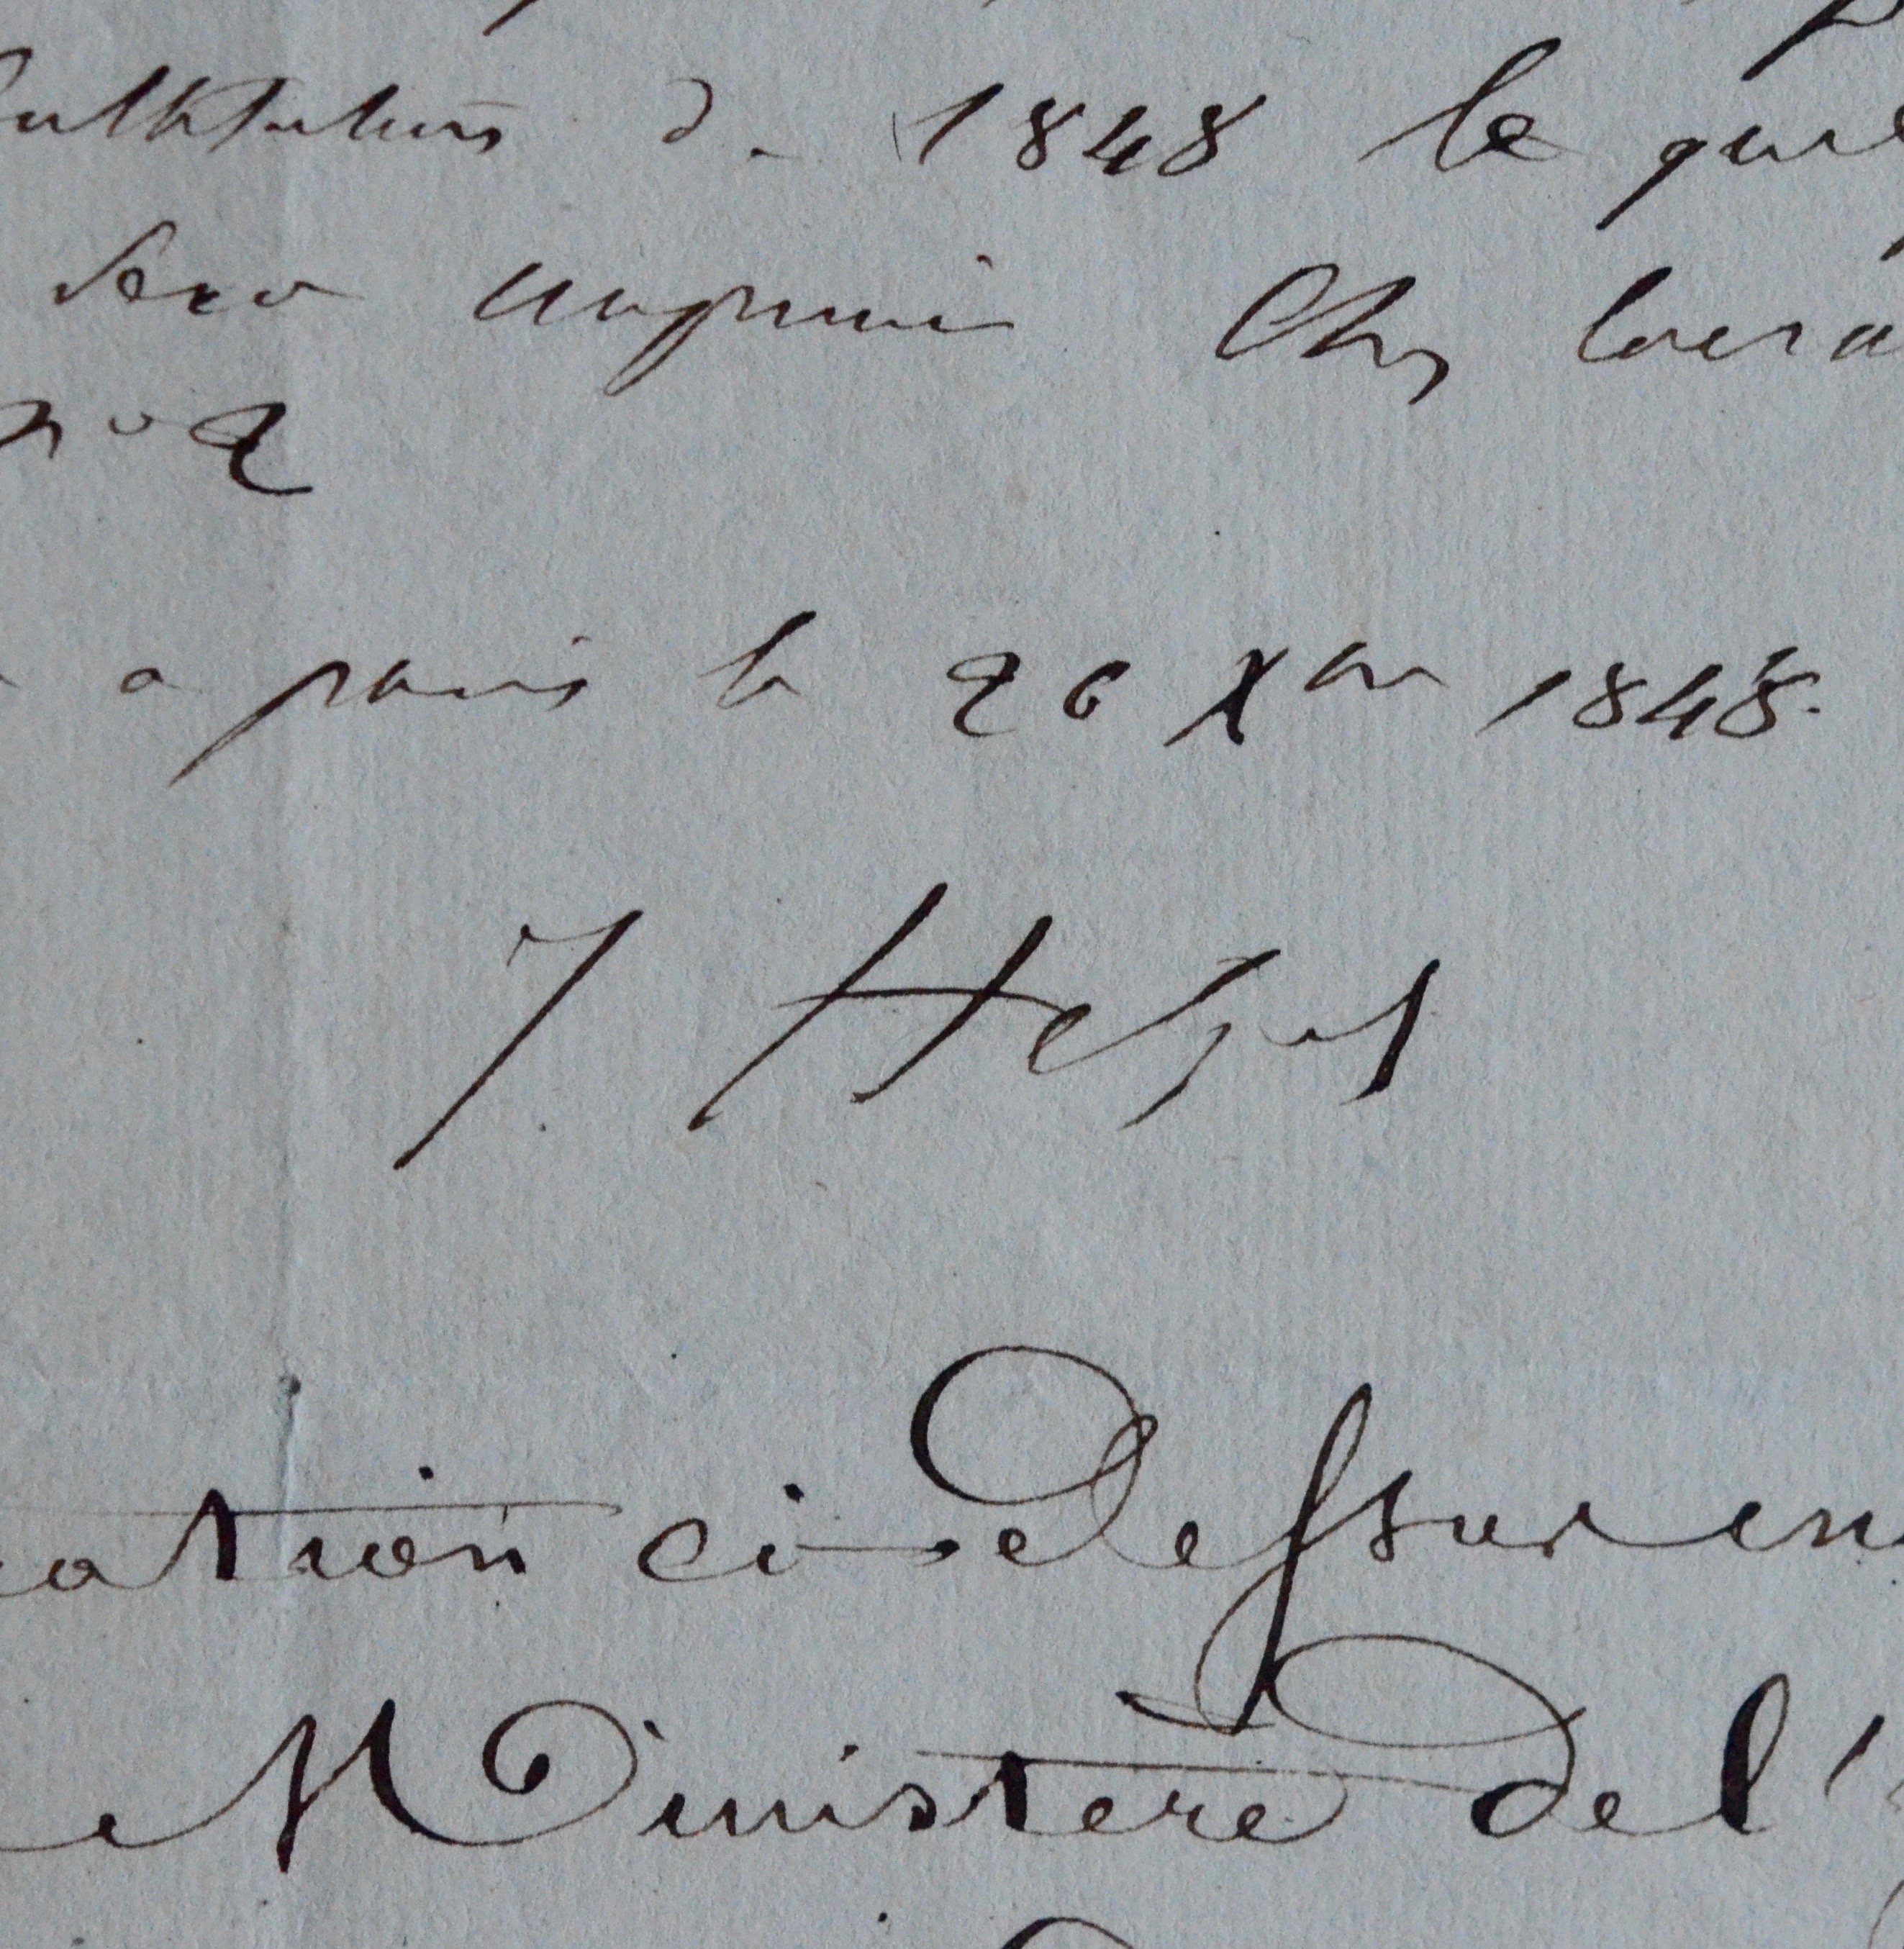 de 1848 le quel
sera imprimé chez
n° 2
a paris le 26 Xbre 1848.
J. Hetzel
ation ci-dessus en
Ministère de l'